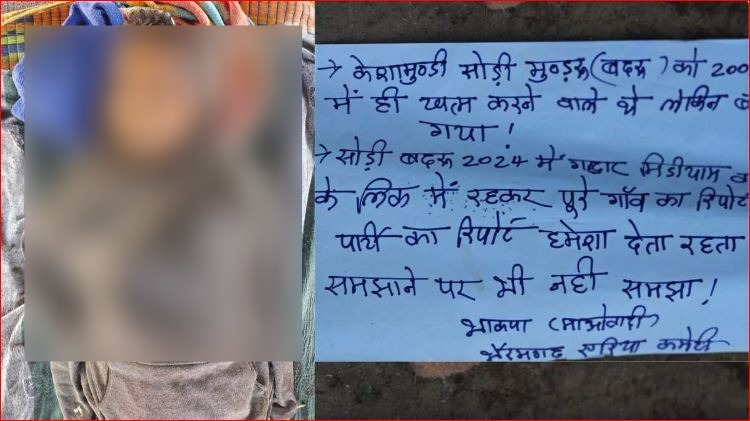 → केशामुण्डी सोड़ी मुण्ड्रू (बदरू) को 200
में ही खत्म करने वाले थे लेकिन ब
गया!
→ सोड़ी बदरू 2024 में गद्दार मिडीयाम
के लिंक में रहकर पूरे गाँव का रिपोर्ट
पार्टी का रिपोर्ट हमेशा देता रहता
समझाने पर भी नही समझा!
भाकपा (माओवादी)
भैरमगढ़ एरिया कमेटी